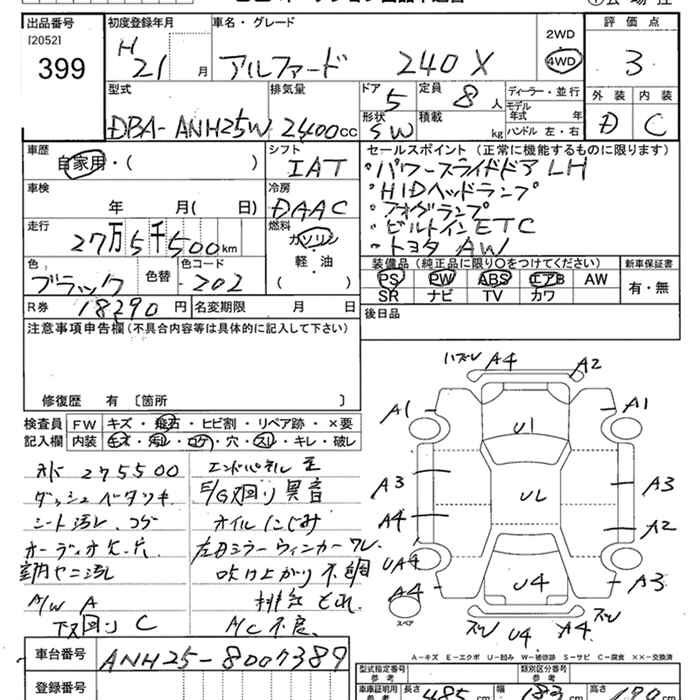 出品番号 初度登録年月 車名・グレード 2WD 評価点
[2052] H 4WD
399 21 月 アルファード 240 X 3
型式 排気量 ドア 定員 ディーラー・並行 外装 内装
5 8人 モデル年式 年
DBA-ANH25W 2400cc 形状 積載 D C
SW kg ハンドル 左・右
車歴 シフト セールスポイント(正常に機能するものに限ります)
自家用・( ) IAT ・パワースライドドア LH
車検 冷房 ・HIDヘッドランプ
年 月( 日) DAAC ・フォグランプ
走行 燃料 ・ビルトインETC
27万5千500km ガソリン ・トヨタ AW
軽・油 装備品(純正品に限り○をつけてください) 新車保証書
色 色替 色コード ( ) PS PW ABS エアB AW 有・無
ブラック 202 SR ナビ TV カワ
R券 18290円 名変期限 月 日 後日品
注意事項申告欄(不具合内容等は具体的に記入して下さい)
修復歴 有 〔箇所 〕
検査員 FW キズ・飛石・ヒビ割・リペア跡・×要
記入欄 内装 キズ・汚レ・コゲ・穴・スレ・キレ・破レ
275500
ダッシュベタツキ E/G廻り異音
シート汚レ、コゲ オイルにじみ
オーディオ欠品 左Dミラーウィンカーワレ
室内ヤニ汚レ 吹け上がり不調
A/W A 排気もれ
下廻り C A/C不良
ハズレ A4 A2
A1 A1
U1
A3 UL A3
A4 A2
UA4
A4 U4 A3
スペア ズレ U4 A4 ズレ
A-キズ E-エクボ U-凹ミ W-補修跡 S-サビ C-腐食 ××-交換済
車台番号 ANH25-8007389
登録番号
型式指定番号 参考 類別区分番号 参考
車庫証明用 参考 長さ 485cm 幅 183cm 高さ 190cm